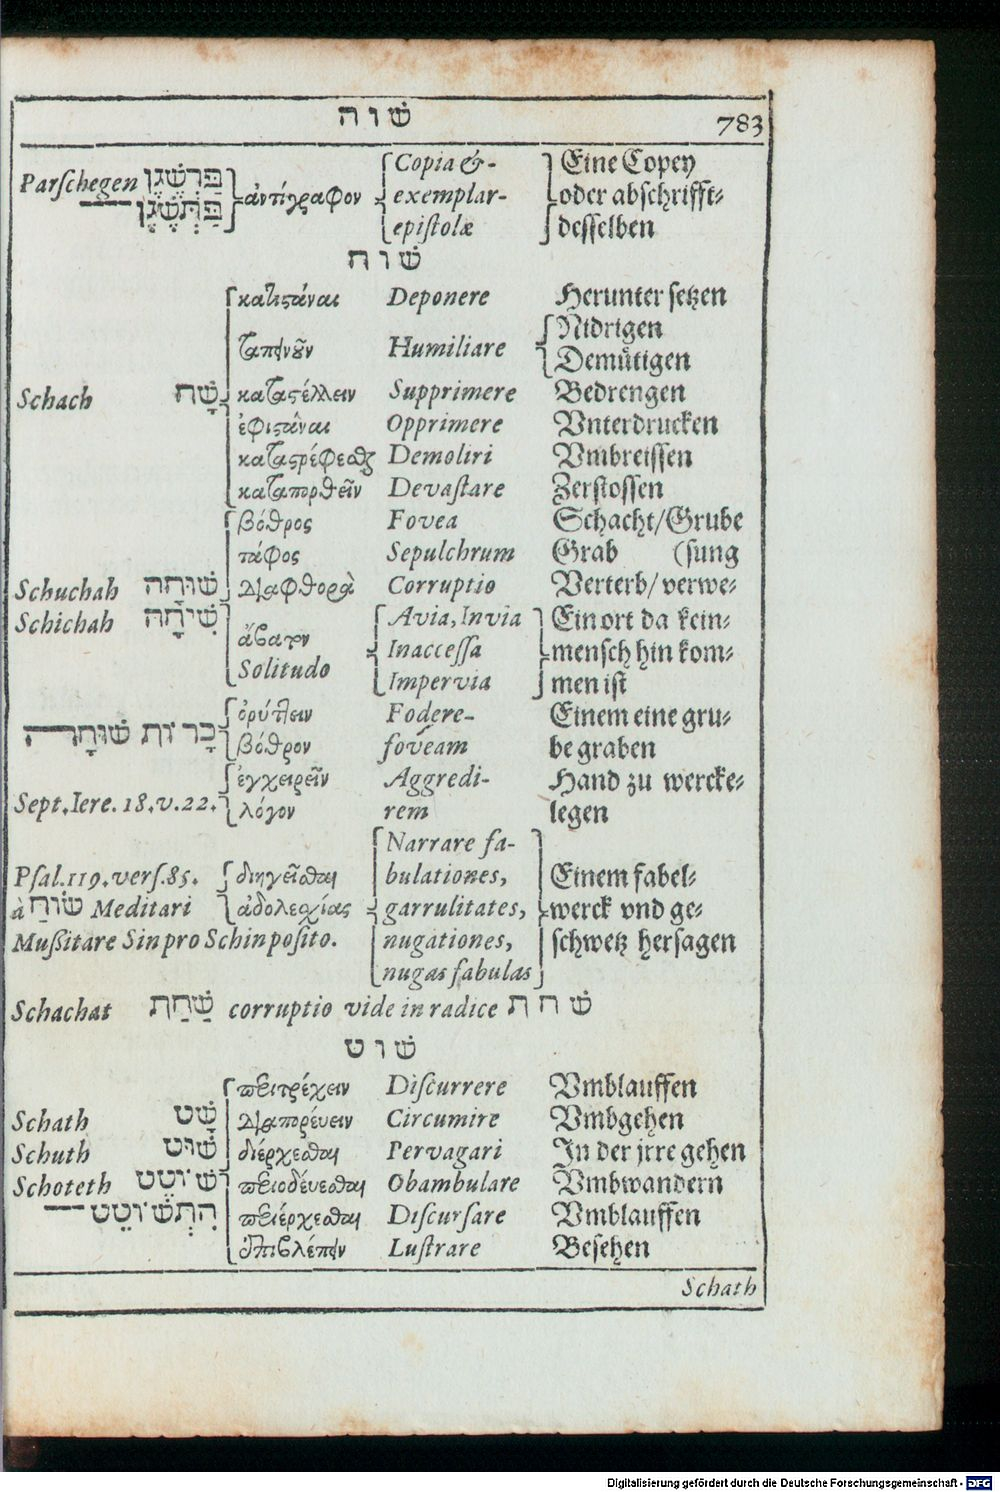 שׁוה 783
Parſchegen פַּרְשֶׁגֶן ἀντίγραφον Copia & Eine Copey
פַּתְשֶׁגֶן exemplar oder abſchrifft⸗
epiſtolæ deſſelben
שׁוח
καθιστάναι Deponere Herunter ſetzen
ταπεινοῦν Humiliare Nidrigen
Demütigen
Schach שָׁח καταστέλλειν Supprimere Bedrengen
ἐφιστάναι Opprimere Vnterdrucken
καταστρέφεσθαι Demoliri Vmbreiſſen
καταπορθεῖν Devaſtare Zerſtoſſen
βόθρος Fovea Schacht/Grube
τάφος Sepulchrum Grab (ſung
Schuchah שׁוּחָה διαφθορὰ Corruptio Verterb/ verwe⸗
Schichah שִׁיחָה ἄβατον Avia, Invia Ein ort da kein⸗
Solitudo Inacceſſa menſch hin kom⸗
Impervia men iſt
כָּרוֹת שׁוּחָה ὀρύττειν Fodere- Einem eine gru⸗
βόθρον foveam be graben
ἐγχειρεῖν Aggredi- Hand zu wercke⸗
Sept. Iere. 18. v. 22. λόγον rem legen
Narrare fa-
Pſal. 119. verſ. 85. διηγεῖσθαι bulationes, Einem fabel⸗
à שׂוּחַ Meditari ἀδολεσχίας garrulitates, werck vnd ge⸗
Muſsitare Sin pro Schin poſito. nugationes, ſchwetz herſagen
nugas fabulas
Schachat שַׁחַת corruptio vide in radice שׁחת
שׁוט
περιτρέχειν Diſcurrere Vmblauffen
Schath שָׁט διαπορεύειν Circumire Vmbgehen
Schuth שׁוּט διέρχεσθαι Pervagari In der jrre gehen
Schoteth שׁוֹטֵט περιοδεύεσθαι Obambulare Vmbwandern
הִתְשׁוֹטֵט περιέρχεσθαι Diſcurſare Vmblauffen
ἐπιβλέπειν Luſtrare Beſehen
Schath
Digitalisierung gefördert durch die Deutsche Forschungsgemeinschaft - DFG